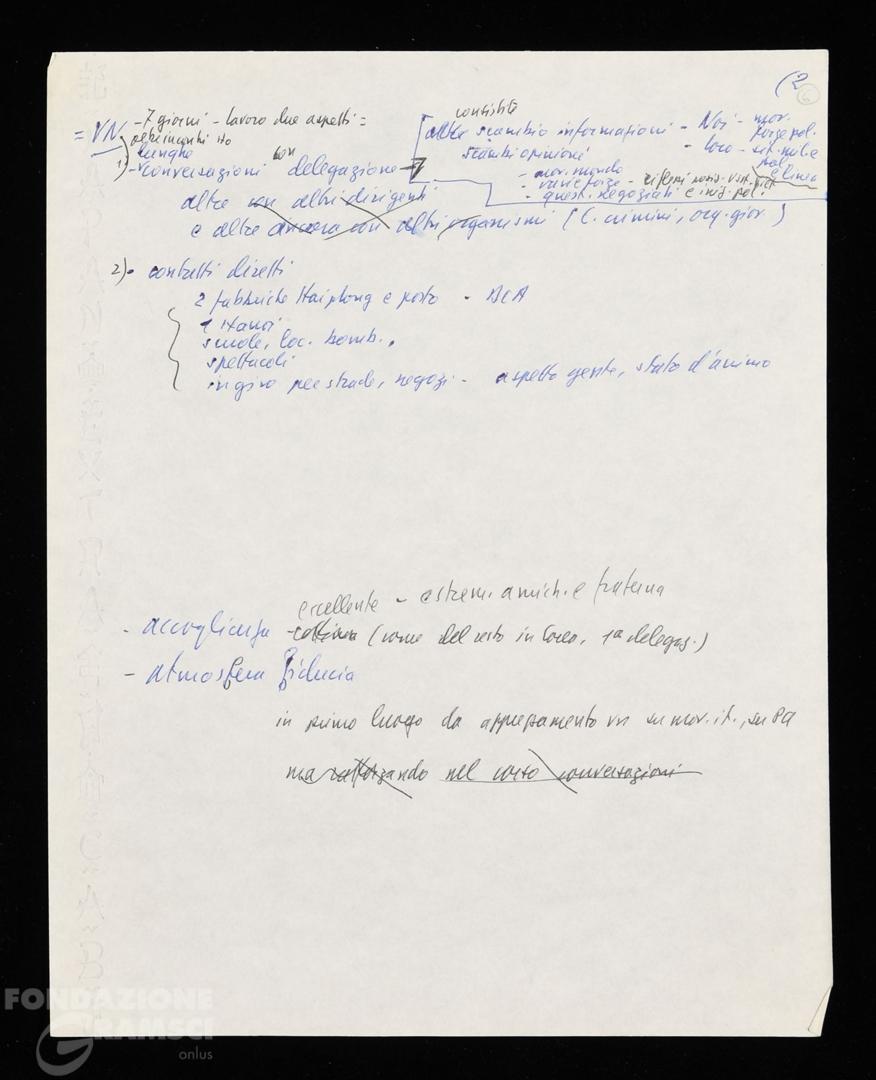 (2
6
= VN - 7 giorni - lavoro due aspetti =
lunghe
1) - conversazioni con delegazione
consistite
scambio informazioni - Noi - mov.
forze pol.
- loro - sit. mil. e
pol.
e linea
scambi opinioni
- mov. mondo
- varie forze -
- quest. negoziati e iniz. pol.
altre con altri dirigenti
e altre ancora con altri organismi (C. crimini, org. gior.)
2) - contatti diretti
2 fabbriche Haiphong e porto -
1 Hanoi
scuole, loc. bomb.,
spettacoli
in giro per strade, negozi - aspetto gente, stato d'animo
eccellente - estrem. amich. e fraterna
- accoglienza - (come del resto in Corea, 1ª delegaz.)
- atmosfera fiducia
in primo luogo da apprezzamento vn su mov. it., su
ma rafforzando nel corso conversazioni
FONDAZIONE
GRAMSCI
onlus